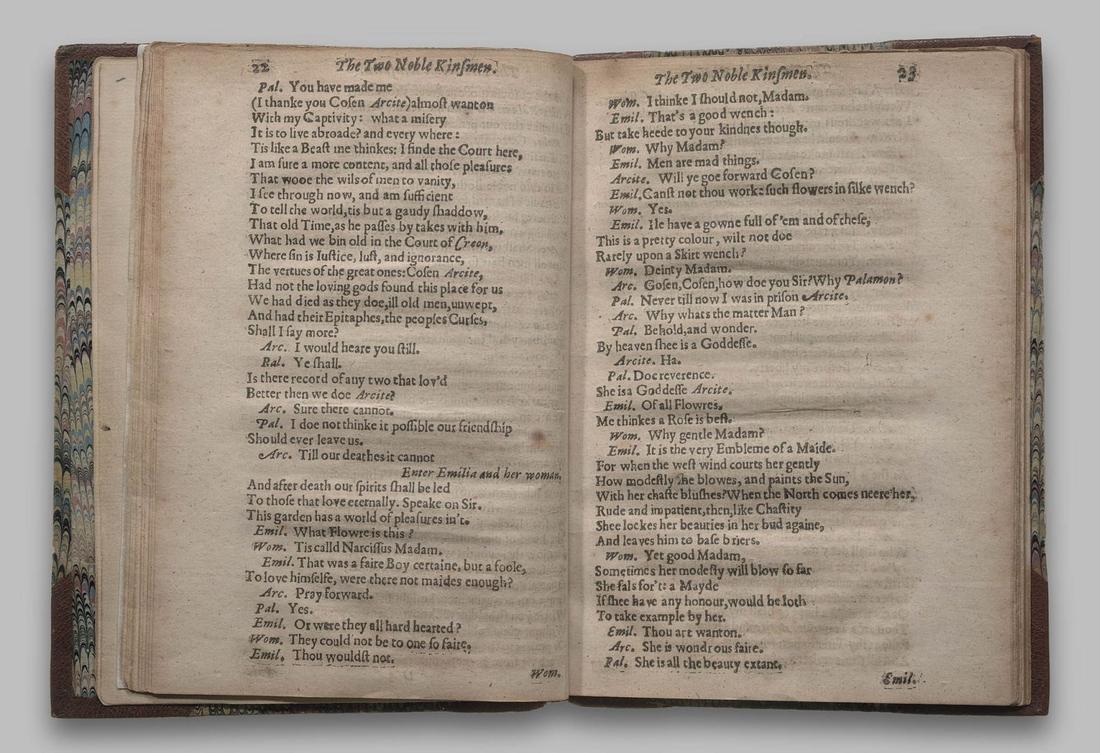 22 The Two Noble Kinſmen.
Pal. You have made me
(I thanke you Coſen Arcite) almoſt wanton
With my Captivity: what a miſery
It is to live abroade? and every where:
Tis like a Beaſt me thinkes: I finde the Court here,
I am ſure a more content, and all thoſe pleaſures
That wooe the wils of men to vanity,
I ſee through now, and am ſufficient
To tell the world, tis but a gaudy ſhaddow,
That old Time, as he paſſes by takes with him,
What had we bin old in the Court of Creon,
Where ſin is Iuſtice, luſt, and ignorance,
The vertues of the great ones: Coſen Arcite,
Had not the loving gods found this place for us
We had died as they doe, ill old men, unwept,
And had their Epitaphes, the peoples Curſes,
Shall I ſay more?
Arc. I would heare you ſtill.
Ral. Ye ſhall.
Is there record of any two that lov'd
Better then we doe Arcite?
Arc. Sure there cannot.
Pal. I doe not thinke it poſſible our friendſhip
Should ever leave us.
Arc. Till our deathes it cannot
Enter Emilia and her woman.
And after death our ſpirits ſhall be led
To thoſe that love eternally. Speake on Sir.
This garden has a world of pleaſures in't.
Emil. What Flowre is this?
Wom. Tis calld Narciſſus Madam.
Emil. That was a faire Boy certaine, but a foole,
To love himſelfe, were there not maides enough?
Arc. Pray forward.
Pal. Yes.
Emil. Or were they all hard hearted?
Wom. They could not be to one ſo faire.
Emil. Thou wouldſt not.
Wom.
The Two Noble Kinſmen. 23
Wom. I thinke I ſhould not, Madam.
Emil. That's a good wench:
But take heede to your kindnes though.
Wom. Why Madam?
Emil. Men are mad things.
Arcite. Will ye goe forward Coſen?
Emil. Canſt not thou worke ſuch flowers in ſilke wench?
Wom. Yes.
Emil. Ile have a gowne full of 'em and of theſe,
This is a pretty colour, wilt not doe
Rarely upon a Skirt wench?
Wom. Deinty Madam.
Arc. Coſen, Coſen, how doe you Sir? Why Palamon?
Pal. Never till now I was in priſon Arcite.
Arc. Why whats the matter Man?
Pal. Behold, and wonder.
By heaven ſhee is a Goddeſſe.
Arcite. Ha.
Pal. Doe reverence.
She is a Goddeſſe Arcite.
Emil. Of all Flowres.
Me thinkes a Roſe is beſt.
Wom. Why gentle Madam?
Emil. It is the very Embleme of a Maide.
For when the weſt wind courts her gently
How modeſtly ſhe blowes, and paints the Sun,
With her chaſte bluſhes? When the North comes neere her,
Rude and impatient, then, like Chaſtity
Shee lockes her beauties in her bud againe,
And leaves him to baſe briers.
Wom. Yet good Madam,
Sometimes her modeſty will blow ſo far
She fals for't: a Mayde
If ſhee have any honour, would be loth
To take example by her.
Emil. Thou art wanton.
Arc. She is wondrous faire.
Pal. She is all the beauty extant.
Emil.